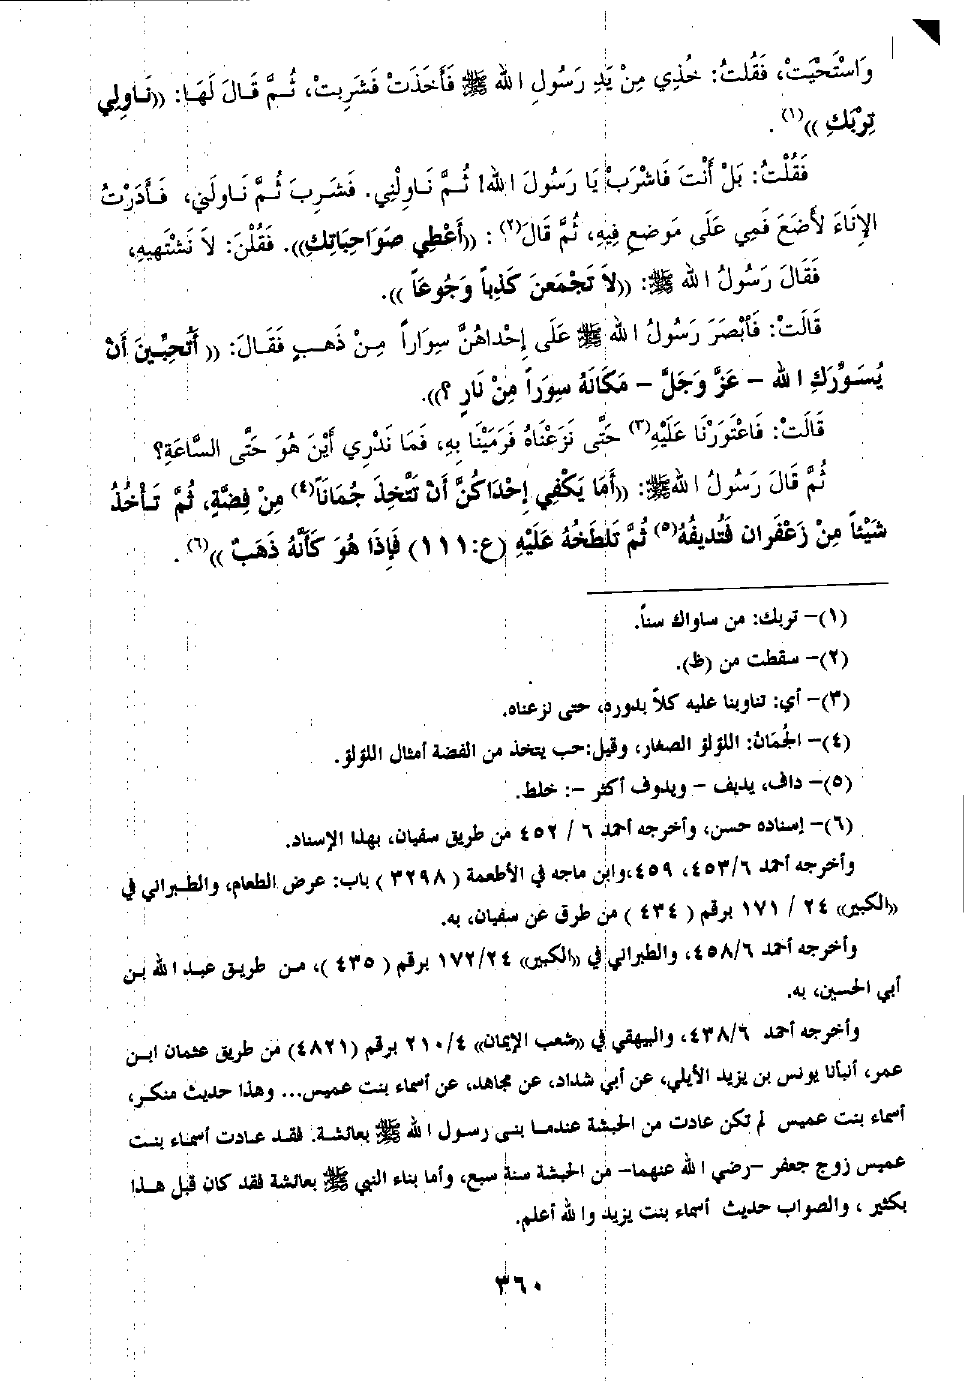 وَاسْتَحْيَتْ، فَقُلتُ: خُذِي مِنْ يَدِ رَسُولِ الله ﷺ فَأَخَذَتْ فَشَرِبتْ، ثُمَّ قَالَ لَهَا: ((نَاوِلِي
تِرْبَكِ))(١) .
فَقُلْتُ: بَلْ أَنْتَ فَاشْرَبْ يَا رَسُولَ الله! ثُمَّ نَاوِلْنِي. فَشَرِبَ ثُمَّ نَاوَلَني، فَأَدَرْتُ
الإِنَاءَ لأَضَعَ فَمِي عَلَى مَوضعِ فِيهِ، ثُمَّ قَالَ(٢) : ((أَعْطِي صَوَاحِبَاتِكِ)). فَقُلْنَ: لاَ نَشْتَهيهِ،
فَقَالَ رَسُولُ الله ﷺ: ((لاَ تَجْمَعنَ كَذِباً وَجُوعَاً )).
قَالَتْ: فَأَبْصَرَ رَسُولُ الله ﷺ عَلَى إِحْداهُنَّ سِوَاراً مِنْ ذَهبٍ فَقَالَ: (( أَتُحِبِّينَ أَنْ
يُسَوِّرَكِ الله - عَزَّ وَجَلَّ - مَكَانَهُ سِوَراً مِنْ نَارٍ ؟)).
قَالَتْ: فَاعْتَوَرْنَا عَلَيْهِ(٣) حَتَّى نَزَعْنَاهُ فَرَمَيْنَا بِهِ، فَمَا نَدْرِي أَيْنَ هُوَ حَتَّى السَّاعَةِ؟
ثُمَّ قَالَ رَسُولُ اللهﷺ: ((أَمَا يَكْفِي إِحْدَاكُنَّ أَنْ تَتَّخِذَ جُمَانَاً(٤) مِنْ فِضَّةٍ، ثُمَّ تَأْخُذُ
شَيْئاً مِنْ زَعْفَران فَتُدِيفُهُ(٥) ثُمَّ تَلطَخُهُ عَلَيْهِ (ع:١١١) فَإِذَا هُوَ كَأَنَّهُ ذَهَبٌ ))(٦) .
(١)- تربك: من ساواك سناً.
(٢)- سقطت من (ظ).
(٣)- أي: تناوبنا عليه كلاً بدوره، حتى نزعناه.
(٤)- الجُمَانُ: اللؤلؤ الصغار، وقيل:حب يتخذ من الفضة أمثال اللؤلؤ.
(٥)- داف، يديف - ويدوف أكثر -: خلط.
(٦)- إسناده حسن، وأخرجه أحمد ٦ / ٤٥٢ من طريق سفيان، بهذا الإسناد.
وأخرجه أحمد ٤٥٣/٦، ٤٥٩ ،وابن ماجه في الأطعمة ( ٣٢٩٨ ) باب: عرض الطعام، والطبراني في
((الكبير)) ٢٤ / ١٧١ برقم ( ٤٣٤ ) من طرق عن سفيان، به.
وأخرجه أحمد ٤٥٨/٦، والطبراني في ((الكبير)) ١٧٢/٢٤ برقم ( ٤٣٥ )، من طريق عبد الله بن
أبي الحسين، به.
وأخرجه أحمد ٤٣٨/٦، والبيهقي في ((شعب الإيمان)) ٢١٠/٤ برقم (٤٨٢١) من طريق عثمان ابن
عمر، أنبأنا يونس بن يزيد الأيلي، عن أبي شداد، عن مجاهد، عن أسماء بنت عميس... وهذا حديث منكر،
أسماء بنت عميس لم تكن عادت من الحبشة عندما بنى رسول الله ﷺ بعائشة. فقد عادت أسماء بنت
عميس زوج جعفر -رضي الله عنهما- من الحبشة سنة سبع، وأما بناء النبي ﷺ بعائشة فقد كان قبل هذا
بكثير ، والصواب حديث أسماء بنت يزيد والله أعلم.
٣٦٠